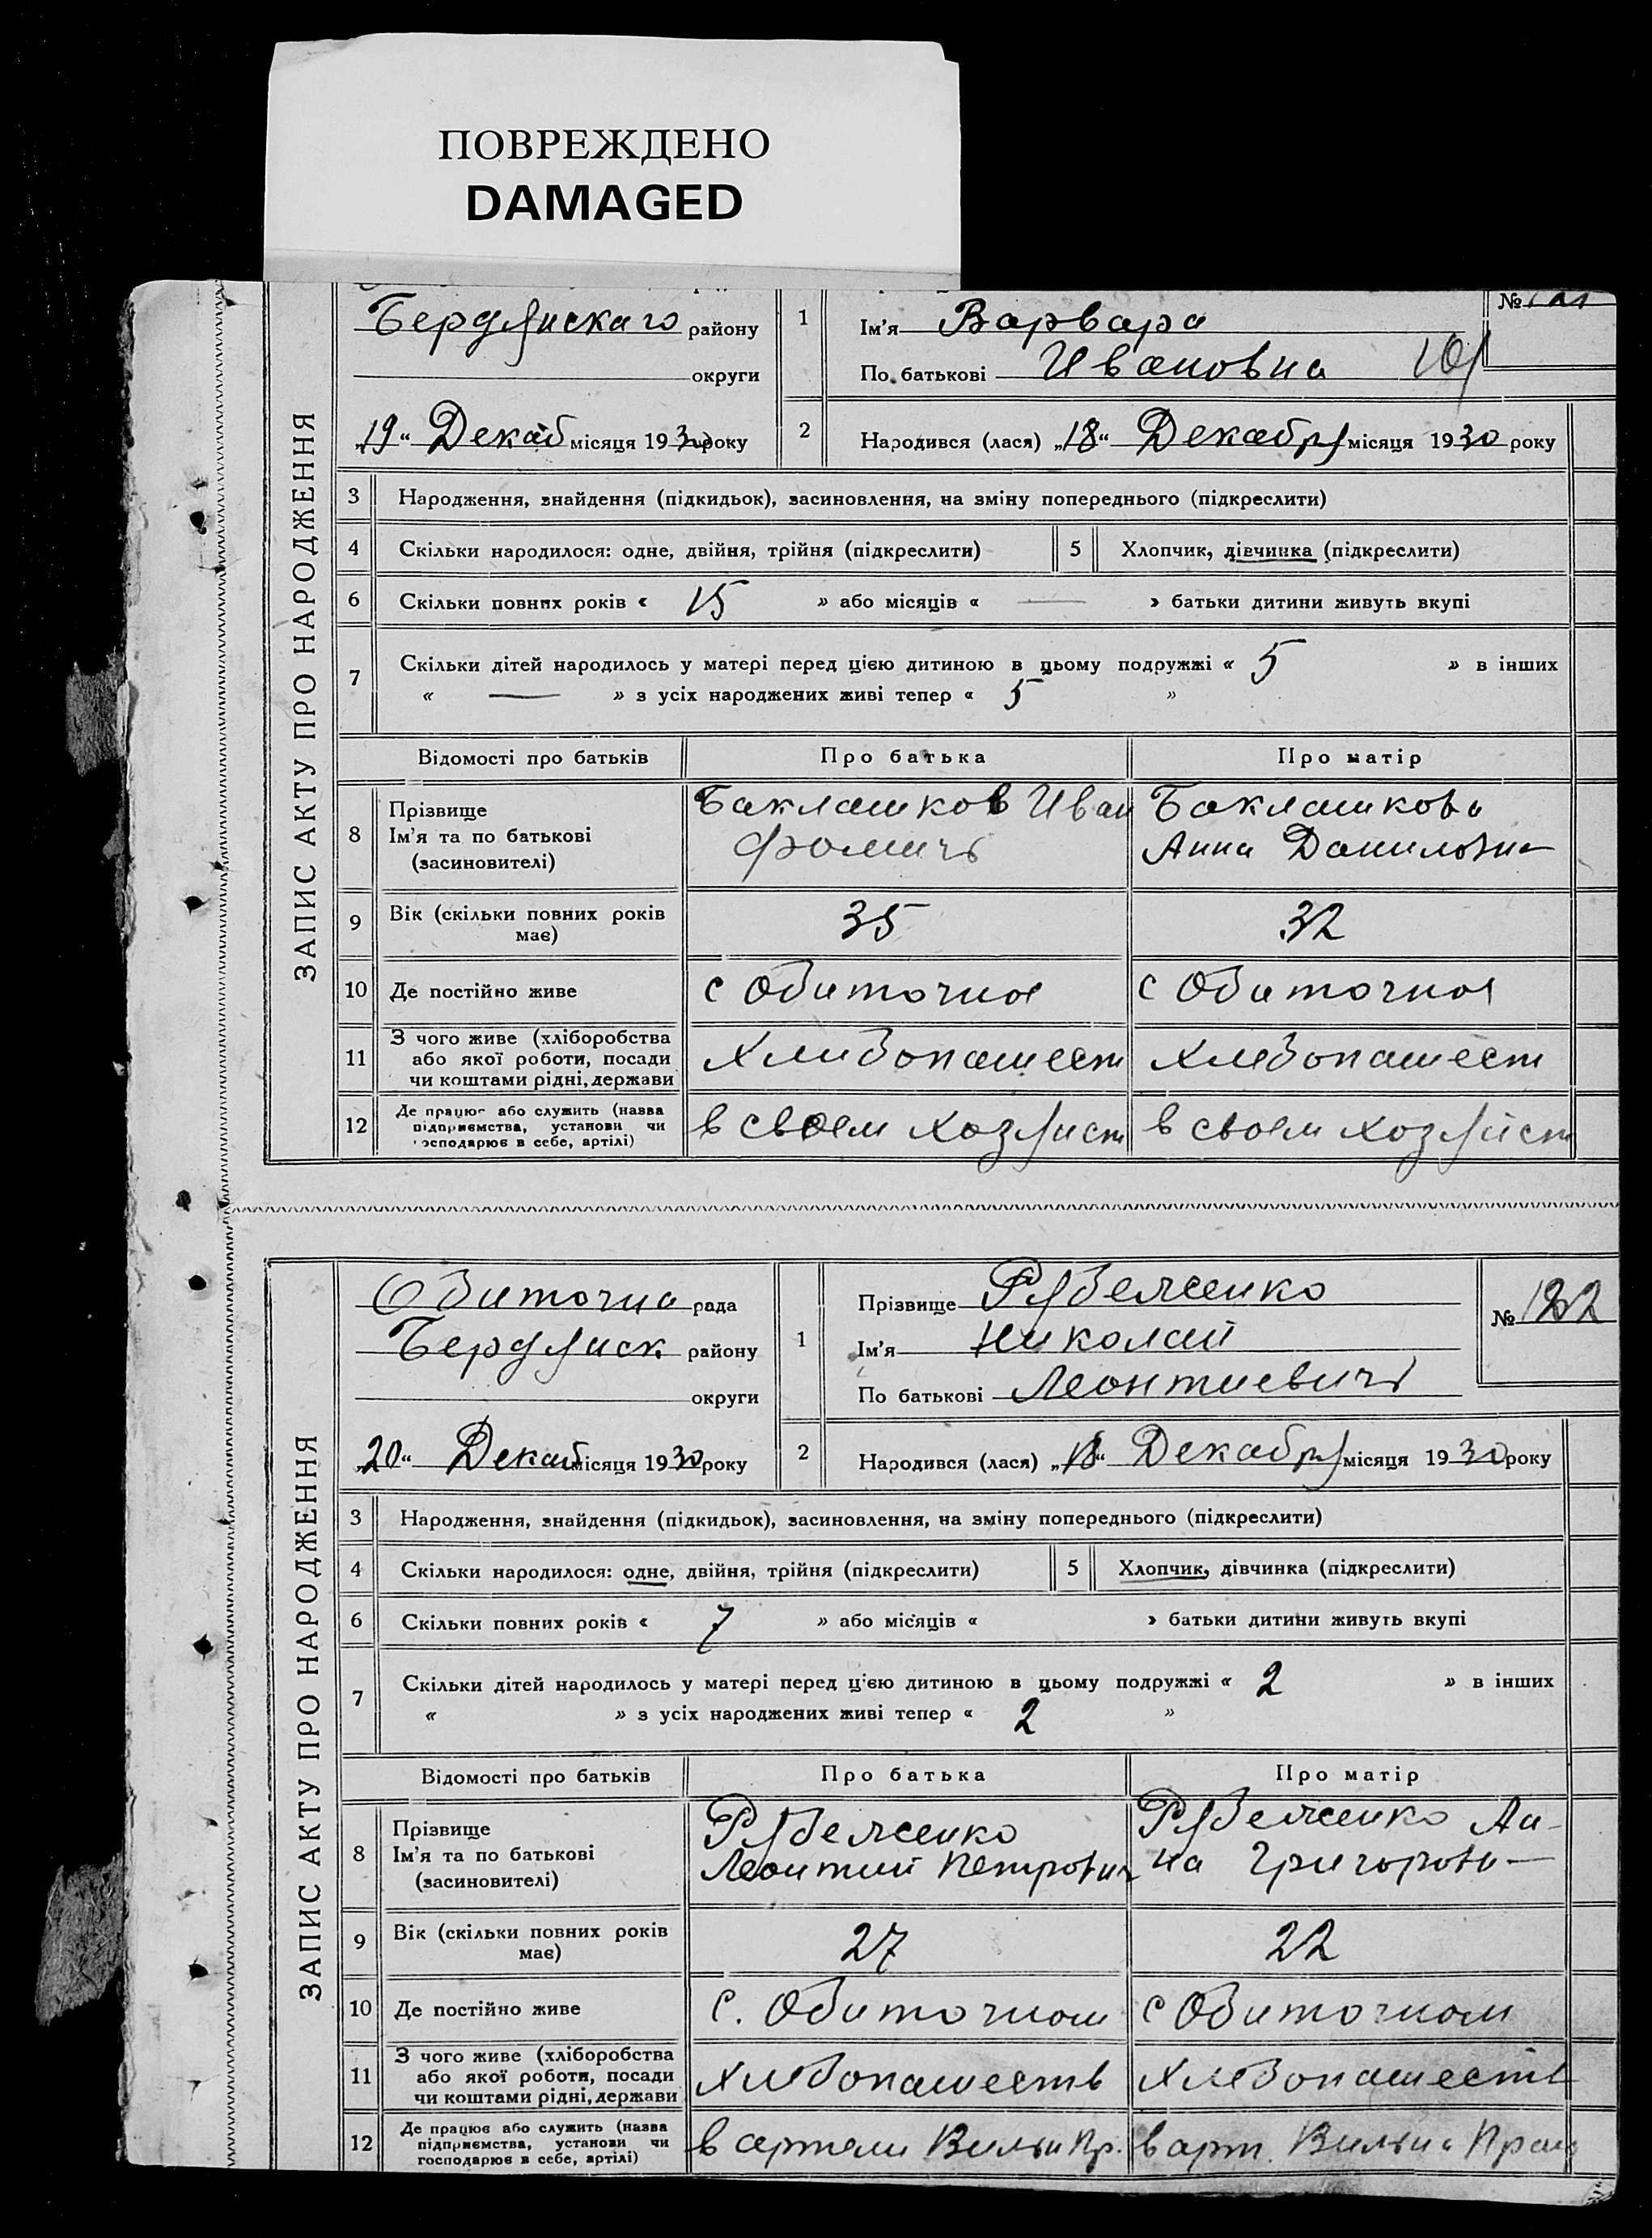 ПОВРЕЖДЕНО
DAMAGED
ЗАПИС АКТУ ПРО НАРОДЖЕННЯ
Бердянскаго району
округи
„19“ Декаб місяця 1930 року
1
Ім'я Варвара
По батькові Ивановна
№
2
Народився (лася) „18“ Декабря місяця 1930 року
3 Народження, знайдення (підкидьок), засиновлення, на зміну попереднього (підкреслити)
4 Скільки народилося: одне, двійня, трійня (підкреслити) 5 Хлопчик, дівчинка (підкреслити)
6 Скільки повних років « 15 » або місяців « — » батьки дитини живуть вкупі
7 Скільки дітей народилось у матері перед цією дитиною в цьому подружжі « 5 » в інших
« — » з усіх народжених живі тепер « 5 »
Відомості про батьків Про батька Про матір
8 Прізвище Ім'я та по батькові (засиновителі) Баклашков Иван Фомичъ Баклашкова Анна Даниловна
9 Вік (скільки повних років має) 35 32
10 Де постійно живе с Обиточное с Обиточное
11 З чого живе (хліборобства або якої роботи, посади чи коштами рідні, держави Хлибопашест Хлебопашест
12 Де працює або служить (назва підприємства, установи чи господарює в себе, артілі) в своем хозяйст в своем хозяйст
ЗАПИС АКТУ ПРО НАРОДЖЕННЯ
Обиточна рада
Бердянск району
округи
„20“ Декаб місяця 1930 року
1
Прізвище Рябелченко
Ім'я Николай
По батькові Леонтиевичъ
№ 122
2
Народився (лася) „18“ Декабря місяця 1930 року
3 Народження, знайдення (підкидьок), засиновлення, на зміну попереднього (підкреслити)
4 Скільки народилося: одне, двійня, трійня (підкреслити) 5 Хлопчик, дівчинка (підкреслити)
6 Скільки повних років « 7 » або місяців « » батьки дитини живуть вкупі
7 Скільки дітей народилось у матері перед цією дитиною в цьому подружжі « 2 » в інших
« » з усіх народжених живі тепер « 2 »
Відомості про батьків Про батька Про матір
8 Прізвище Ім'я та по батькові (засиновителі) Рябелченко Леонтий Петрович Рябелченко Анна Григоровн
9 Вік (скільки повних років має) 27 22
10 Де постійно живе с. Обиточном с Обиточном
11 З чого живе (хліборобства або якої роботи, посади чи коштами рідні, держави Хлебопашеств Хлебопашеств
12 Де працює або служить (назва підприємства, установи чи господарює в себе, артілі) в артели Вильн Пр. в арт. Вильна Прац